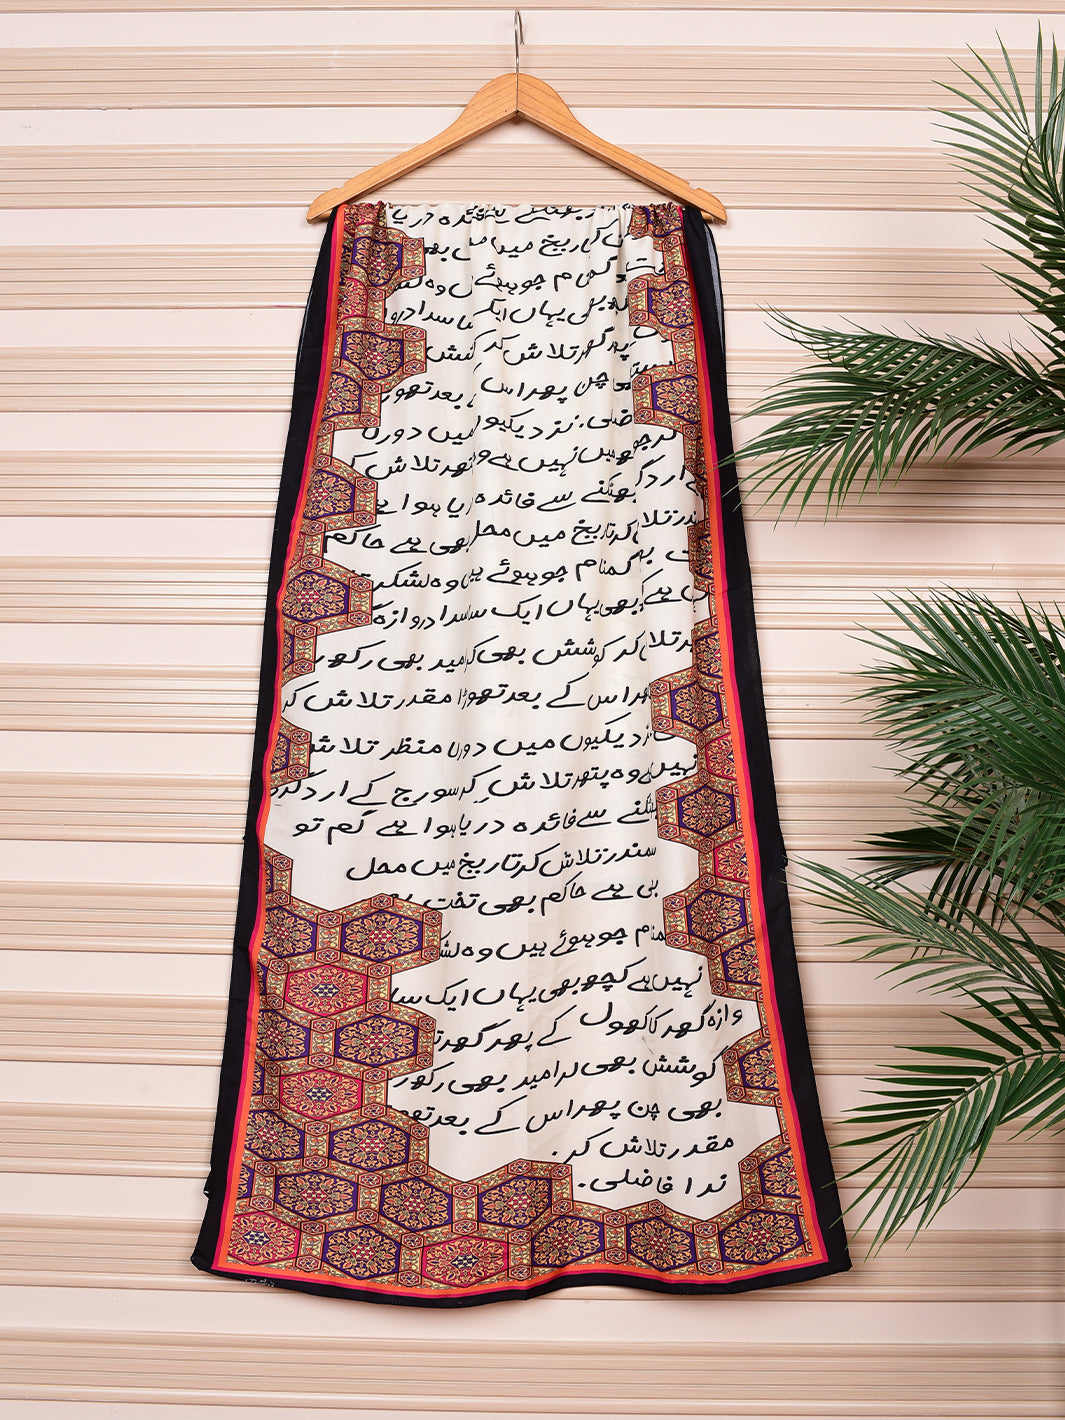 دریا
تاریخ میں
گمنام جو ہوئے
بھی یہاں ایک سا سدا
گھر تلاش کر
چن پھر اس بعد تھو
فاضلی. نزدیکیو میں دور
نہیں ہے و تھر تلاش ک
ارد گ بھٹکنے سے فائدہ ریا ہوا ہے
ندر تلا کر تاریخ میں محل بھی ہے حاکم
گمنام جو ہوئے ہیں وہ لشکر
ہے ک بھی یہاں ایک سا سدا دروازہ گ
در تلا کر کوشش بھی ک امید بھی رکھ ر
ھر اس کے بعد تھوڑا مقدر تلاش کر
نزدیکیوں میں دور ا منظر تلاش
نہیں ہے وہ پتھر تلاش کر سورج کے ارد گرد
بھٹکنے سے فائدہ دریا ہوا ہے گم تو
سمندر تلاش کر تاریخ میں محل
بھی ہے حاکم بھی تخت
گمنام جو ہوئے ہیں وہ لشک
نہیں ہے کچھ بھی یہاں ایک سا
وازہ گھر کا کھول کے پھر گھر ت
کوشش بھی کر امید بھی رکھ ر
بھی چن پھر اس کے بعد تھو
مقدر تلاش کر.
ندا فاضلی.